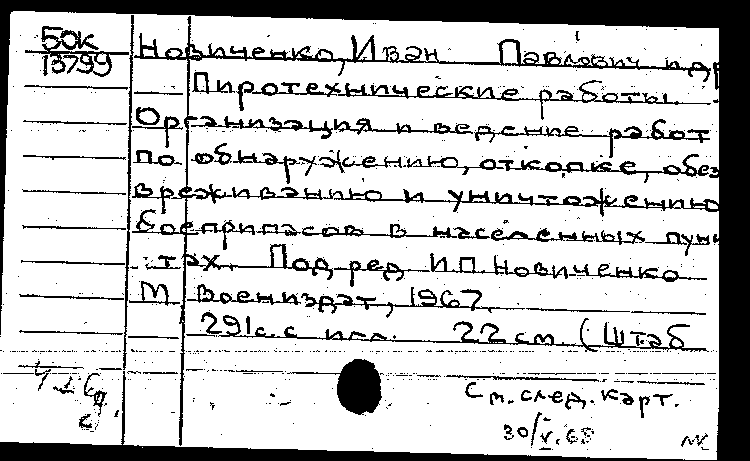 50к
13799
Новиченко, Иван Павлович и др
Пиротехнические работы.
Организация и ведение работ
по обнаружению, откопке, обез
вреживанию и уничтожению
боеприпасов в населенных пунк
тах. Под ред И.П. Новиченко
М Воениздат, 1967.
291с. с илл. 22 см (Штаб
См. след. карт.
30/V.68